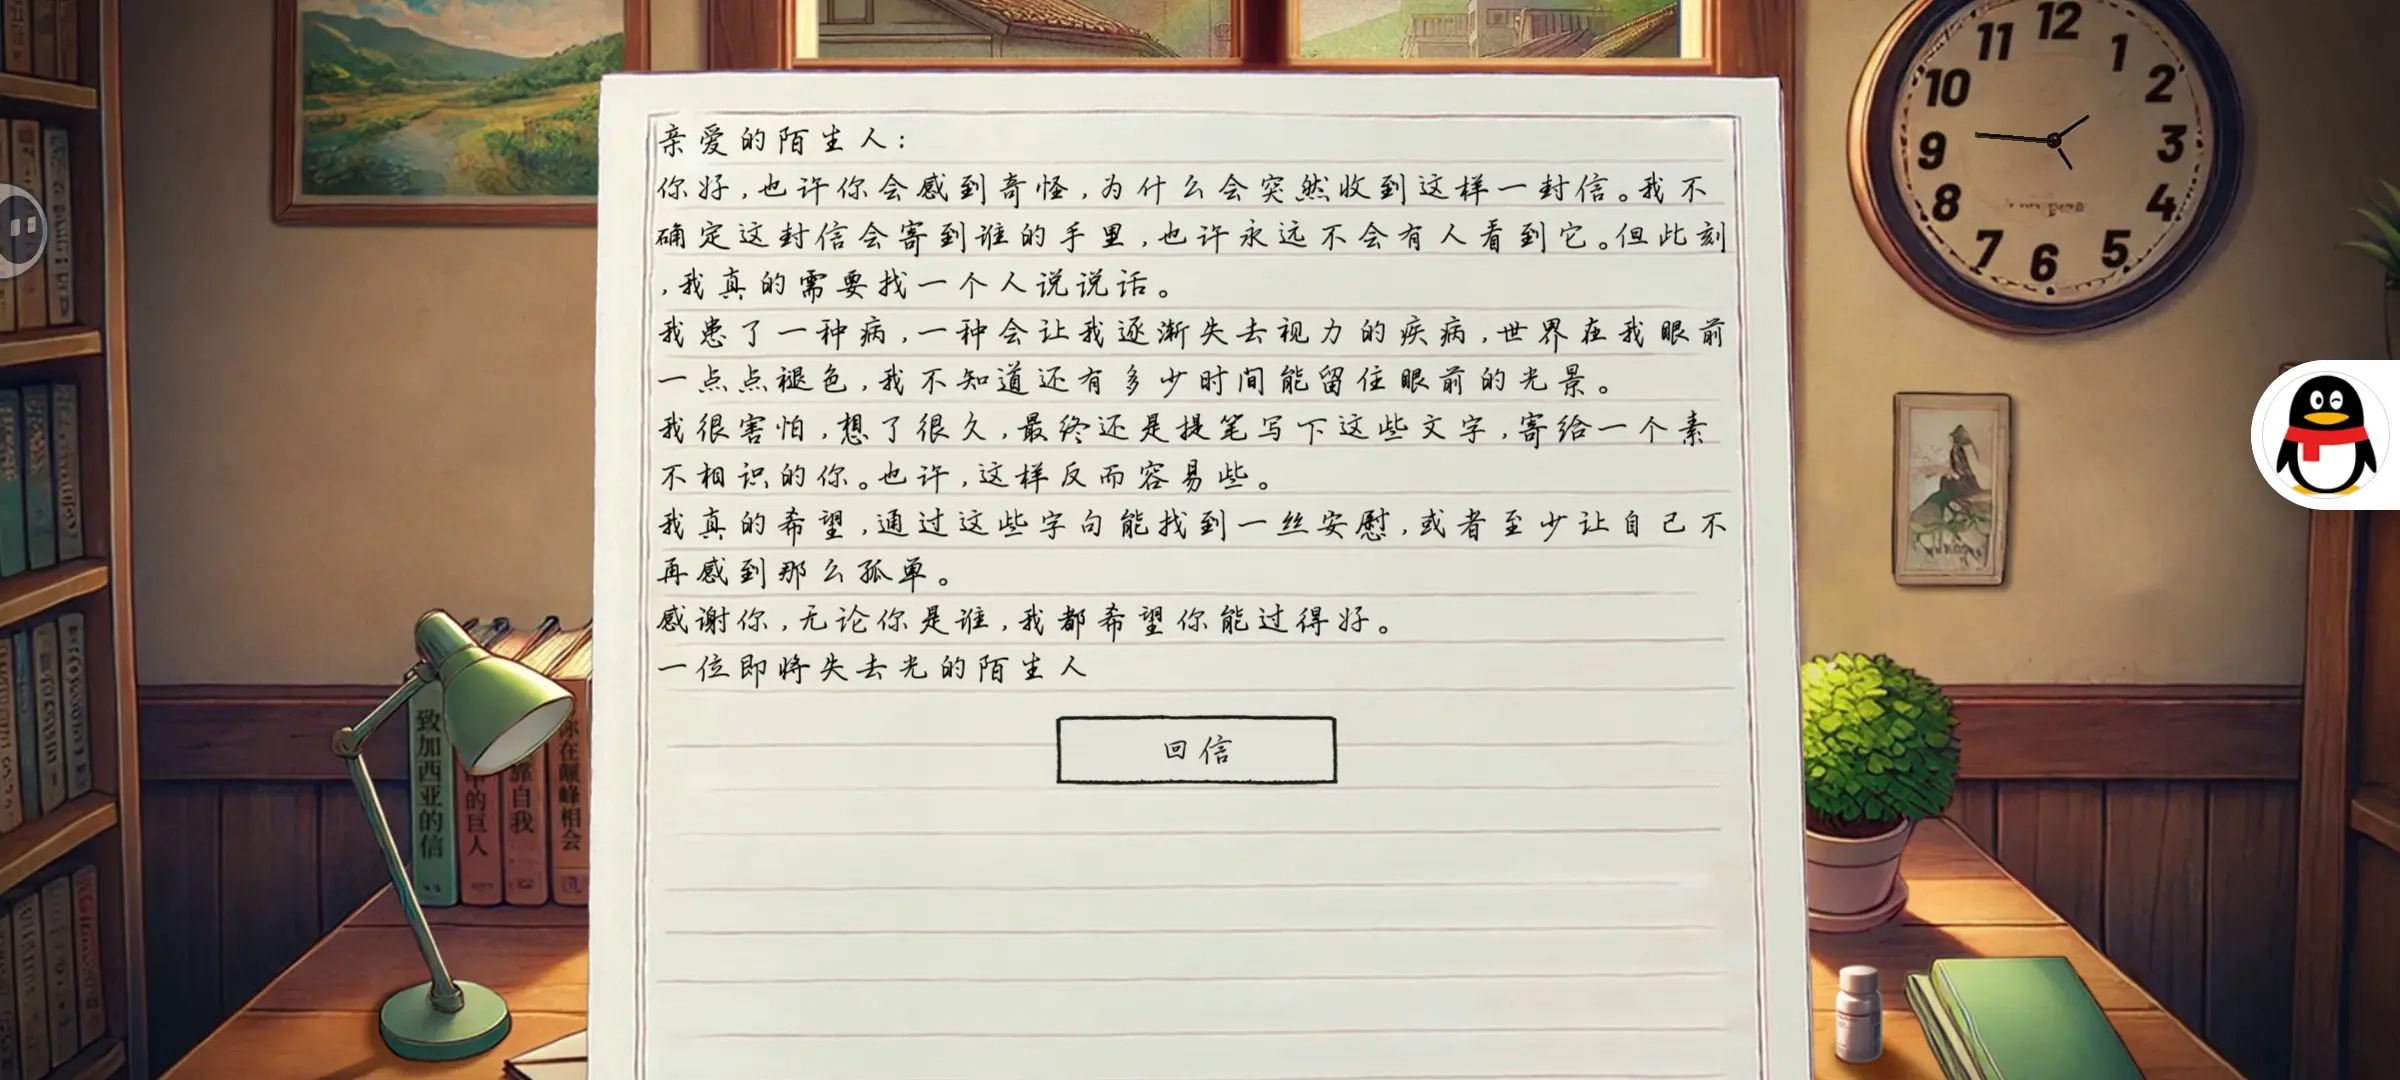 亲爱的陌生人：
你好，也许你会感到奇怪，为什么会突然收到这样一封信。我不
确定这封信会寄到谁的手里，也许永远不会有人看到它。但此刻
，我真的需要找一个人说说话。
我患了一种病，一种会让我逐渐失去视力的疾病，世界在我眼前
一点点褪色，我不知道还有多少时间能留住眼前的光景。
我很害怕，想了很久，最终还是提笔写下这些文字，寄给一个素
不相识的你。也许，这样反而容易些。
我真的希望，通过这些字句能找到一丝安慰，或者至少让自己不
再感到那么孤单。
感谢你，无论你是谁，我都希望你能过得好。
一位即将失去光的陌生人
回信
致加西亚的信
的巨人
靠自我
你在巅峰相会
12
1
2
3
4
5
6
7
8
9
10
11